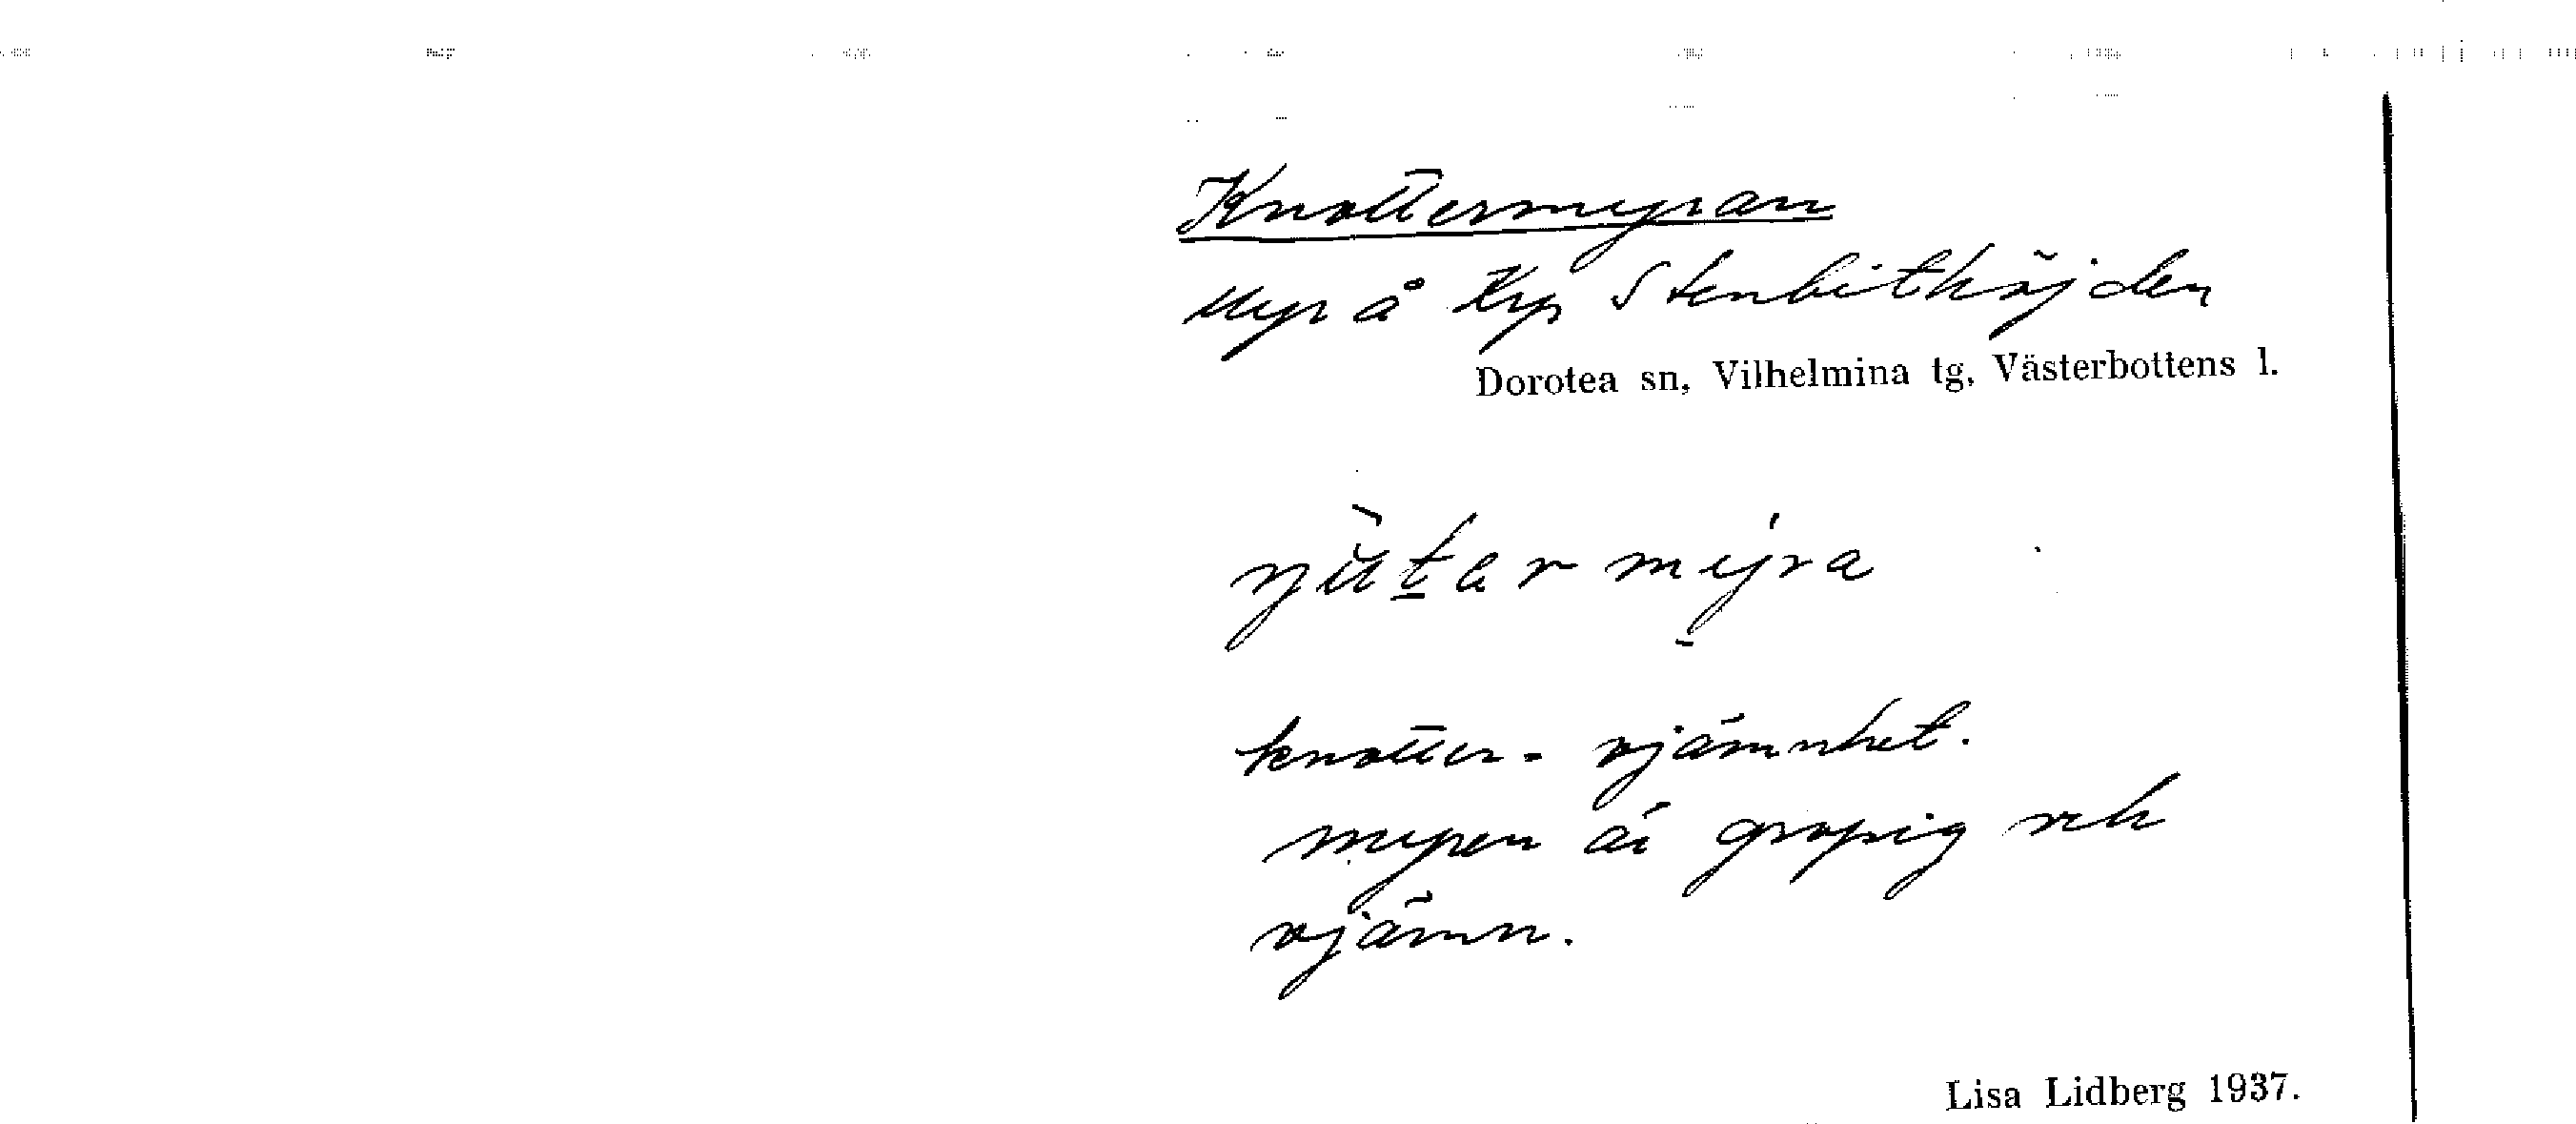 Knottermyran
Myr å Krp Stenbithöjden
Dorotea sn, Vilhelmina tg, Västerbottens l.
knotter = ojämnhet.
myren är gropig och
ojämn.
Lisa Lidberg 1937.